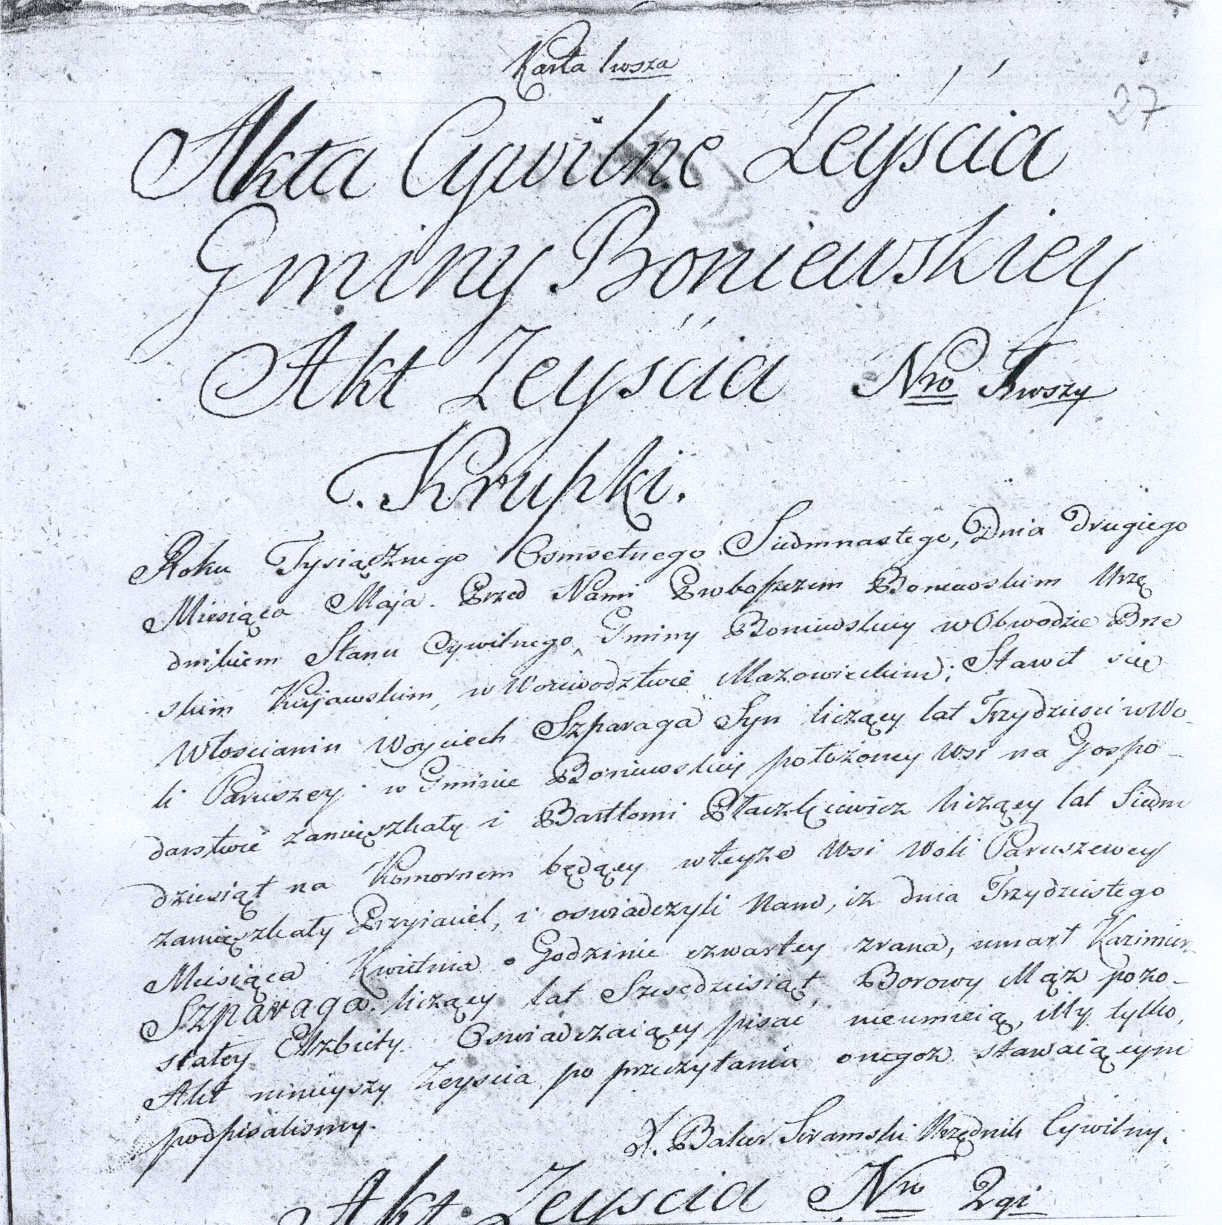 Karta 1wsza
27
Akta Cywilne Zeyścia
Gminy Boniewskiey
Akt Zeyścia Nro 1wszy
Krupki.
Roku Tysiącznego Osmsetnego Siedmnastego, Dnia drugiego
Miesiąca Maja. Przed Nami Proboszczem Boniewskim Urzę
dnikiem Stanu Cywilnego Gminy Boniewskiey w Obwodzie Brze
skim Kujawskim, w Woiewodztwie Mazowieckim; Stawił się
Włoscianin Woyciech Szparaga Syn liczący lat Trzydziesci w Wo-
li Paruszey w Gminie Boniewskiey położoney Wsi na Gospo-
darstwie zamięszkały i Bartłomi liczący lat Siedm
dziesiąt na Komornem będący w teyże Wsi Woli Paruszewey
zamięszkały Przyiaciel, i oswiadczyli Nam, iż dnia Trzydziestego
Meisiąca Kwietnia o Godzinie czwartey zrana, umarł Kazimierz
Szparaga liczący lat Szescdziesiąt, Borowy Mąż pozo-
stałey Elzbiety. Oswiadczaiący pisać nieumieią, My tylko,
Akt ninieyszy Zeyscia po przeczytaniu onegoż stawaiącym
podpisalismy.
X. Urzędnik Cywilny.
Akt Zeyścia Nro 2gi